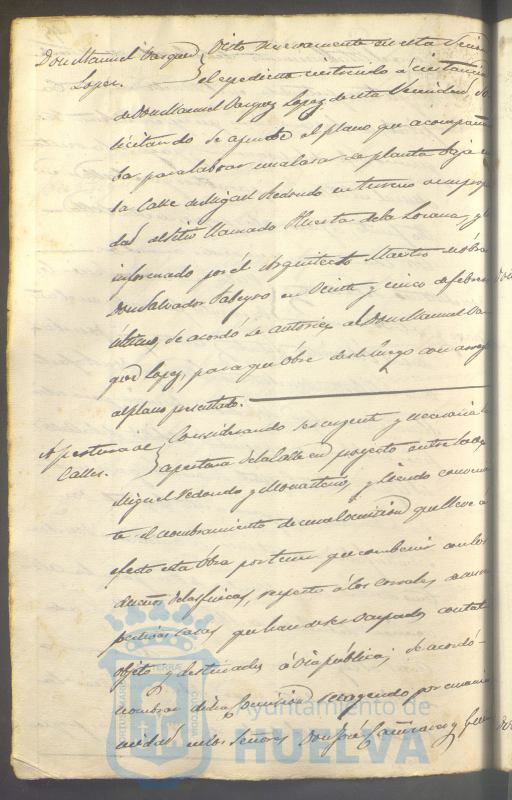 Don Manuel Vasquez
Lopez.
Visto nuevamente en esta Sesion
el expediente instruido á instancia
de Don Manuel Vasquez Lopez de esta Vecindad, so
licitando se apruebe el plano que acompaña
ba para labrar una casa de planta baja en
la Calle de Miguel Redondo en terreno de su propie
dad al sitio llamado Huerta de la
informado por el Arquitecto Maestro de obras
Don Salvador en Veinte y cinco de febrero
último, se acordó se autorice al Don Manuel Vas
quez Lopez, para que obre desde luego con arreglo
al plano presentado.
Apertura de
Calles.
Considerando ser urgente y necesaria la
apertura de la Calle en proyecto entre la de
Miguel Redondo y Monasterio, y siendo convenien
te el nombramiento de una Comision que lleve a
efecto esta obra por tener que convenir con los
dueños de las fincas, respecto á los corrales
casas que han de ser ocupados con tal
objeto y destinados á via pública; se acordó
nombrar dicha Comision recayendo por unani
midad en los Señores Don José y
Ayuntamiento de
HUELVA